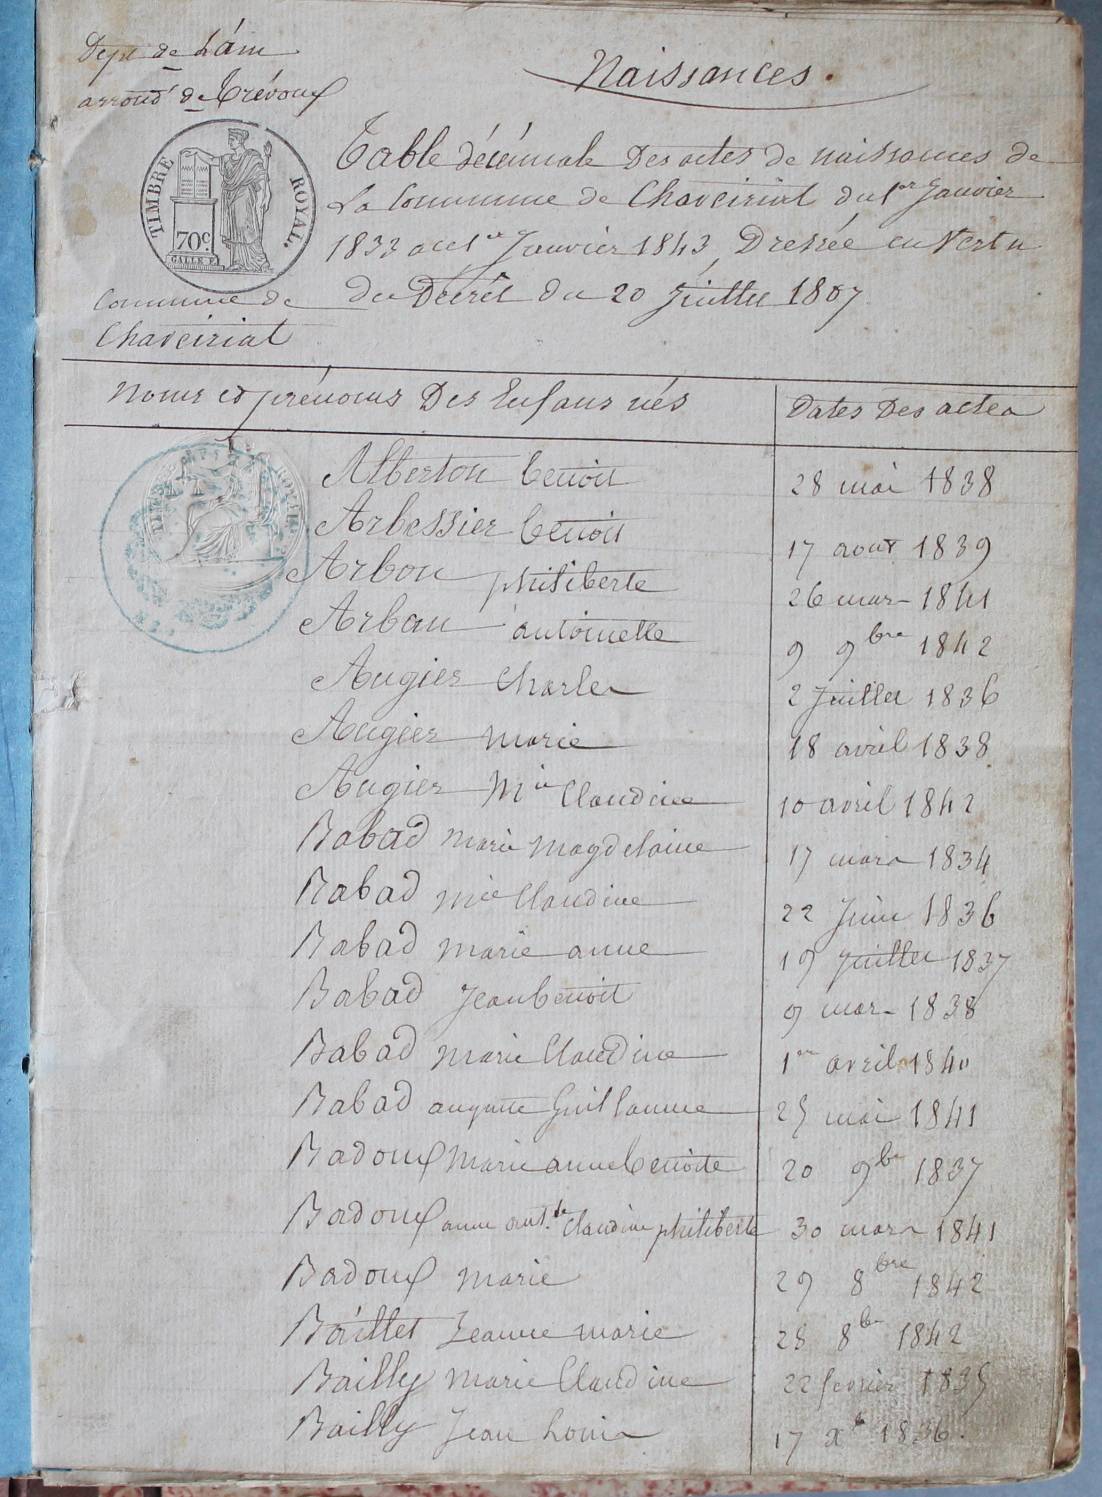 Dept de L'ain
arrondt de Trévoux
Naissances.
TIMBRE ROYAL.
70c.
GALLE F.
Table décennale des actes de naissances de
La Commune de Chaveiriat du 1er Janvier
1833 au 1er Janvier 1843, Dressée en Vertu
du Décrêt du 20 Juillet 1807
Commune de
Chaveiriat
Noms et prénoms Des Enfans nés
Dates Des actes
Alberton benoit 28 mai 1838
Arbessier benoit 17 aout 1839
Arbon philiberte 26 mars 1841
Arban antoinette 9 9bre 1842
Augier Charles 2 Juillet 1836
Augier marie 18 avril 1838
Augier Mie Claudine 10 avril 1842
Babad marie magdelaine 17 mars 1834
Babad mie Claudine 22 Juin 1836
Babad marie anne 19 Juillet 1837
Babad Jean benoit 9 mars 1838
Babad marie Claudine 1er avril 1840
Babad auguste Guillaume 25 mai 1841
Badoux marie anne benoite 20 9b 1837
Badoux anne ant.te Claudine philiberte 30 mars 1841
Badoux marie 29 8bre 1842
Baillet Jeanne marie 28 8b 1842
Bailly marie Claudine 22 fevrier 1835
Bailly Jean Louis 17 xb 1836.